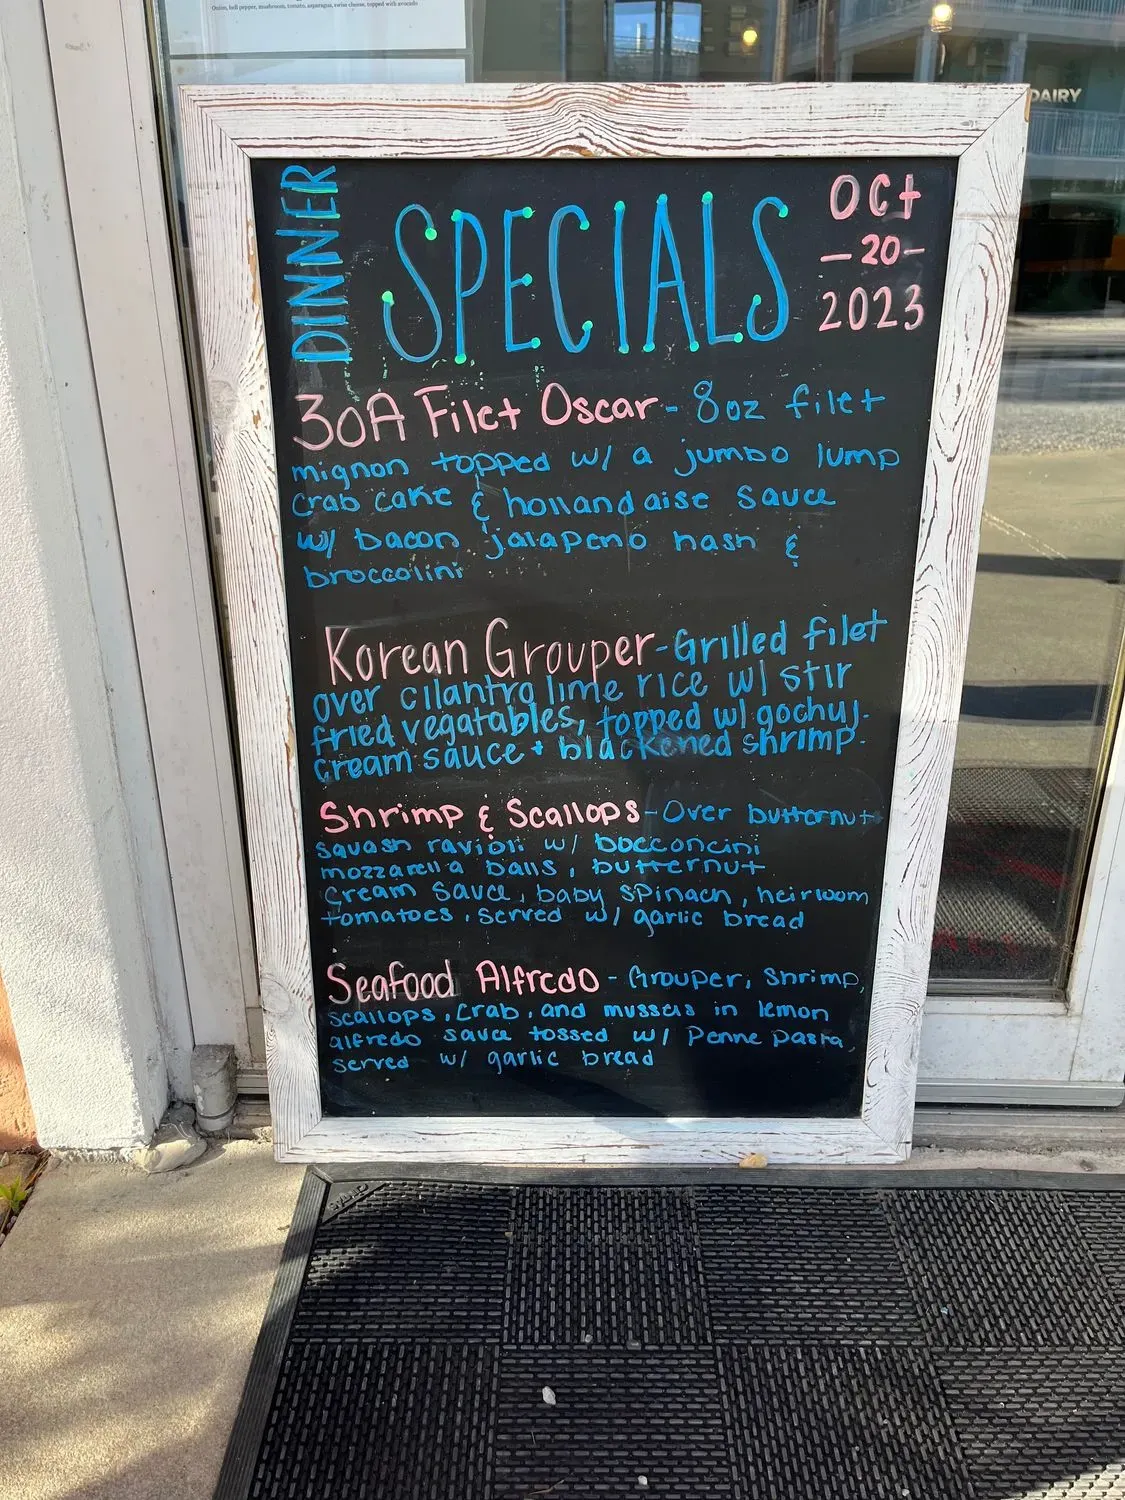 Onion, bell pepper, mushroom, tomato, asparagus, swiss cheese, topped with avocado
DAIRY
DINNER
SPECIALS
OCT
-20-
2023
30A Filet Oscar - 8oz filet
mignon topped w/ a jumbo lump
crab cake & hollandaise sauce
w/ bacon jalapeno hash &
broccolini
Korean Grouper - Grilled filet
over cilantro lime rice w/ stir
fried vegatables, topped w/ gochuj.
cream sauce + blackened shrimp.
Shrimp & Scallops - Over butternut
squash ravioli w/ bocconcini
mozzarella balls, butternut
cream sauce, baby spinach, heirloom
tomatoes, served w/ garlic bread
Seafood Alfredo - Grouper, shrimp,
scallops, crab, and mussels in lemon
alfredo sauce tossed w/ Penne pasta,
served w/ garlic bread